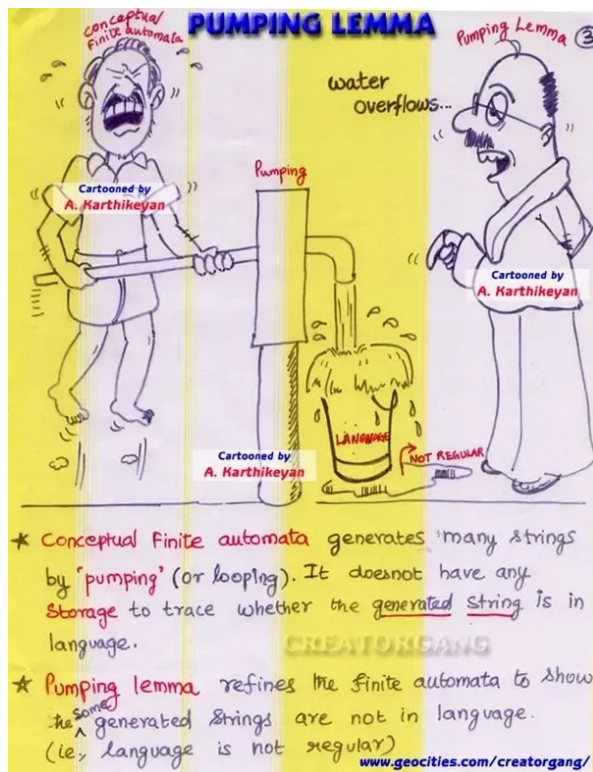 PUMPING LEMMA
conceptual
Finite automata
Pumping Lemma
3
water
overflows...
Pumping
Cartooned by
A. Karthikeyan
Cartooned by
A. Karthikeyan
LANGUAGE
NOT REGULAR
Cartooned by
A. Karthikeyan
* Conceptual Finite automata generates many strings
by 'pumping' (or looping). It doesnot have any
Storage to trace whether the generated string is in
language.
CREATORGANG
* Pumping lemma refines the finite automata to show
the some generated strings are not in language.
(ie., language is not regular)
www.geocities.com/creatorgang/